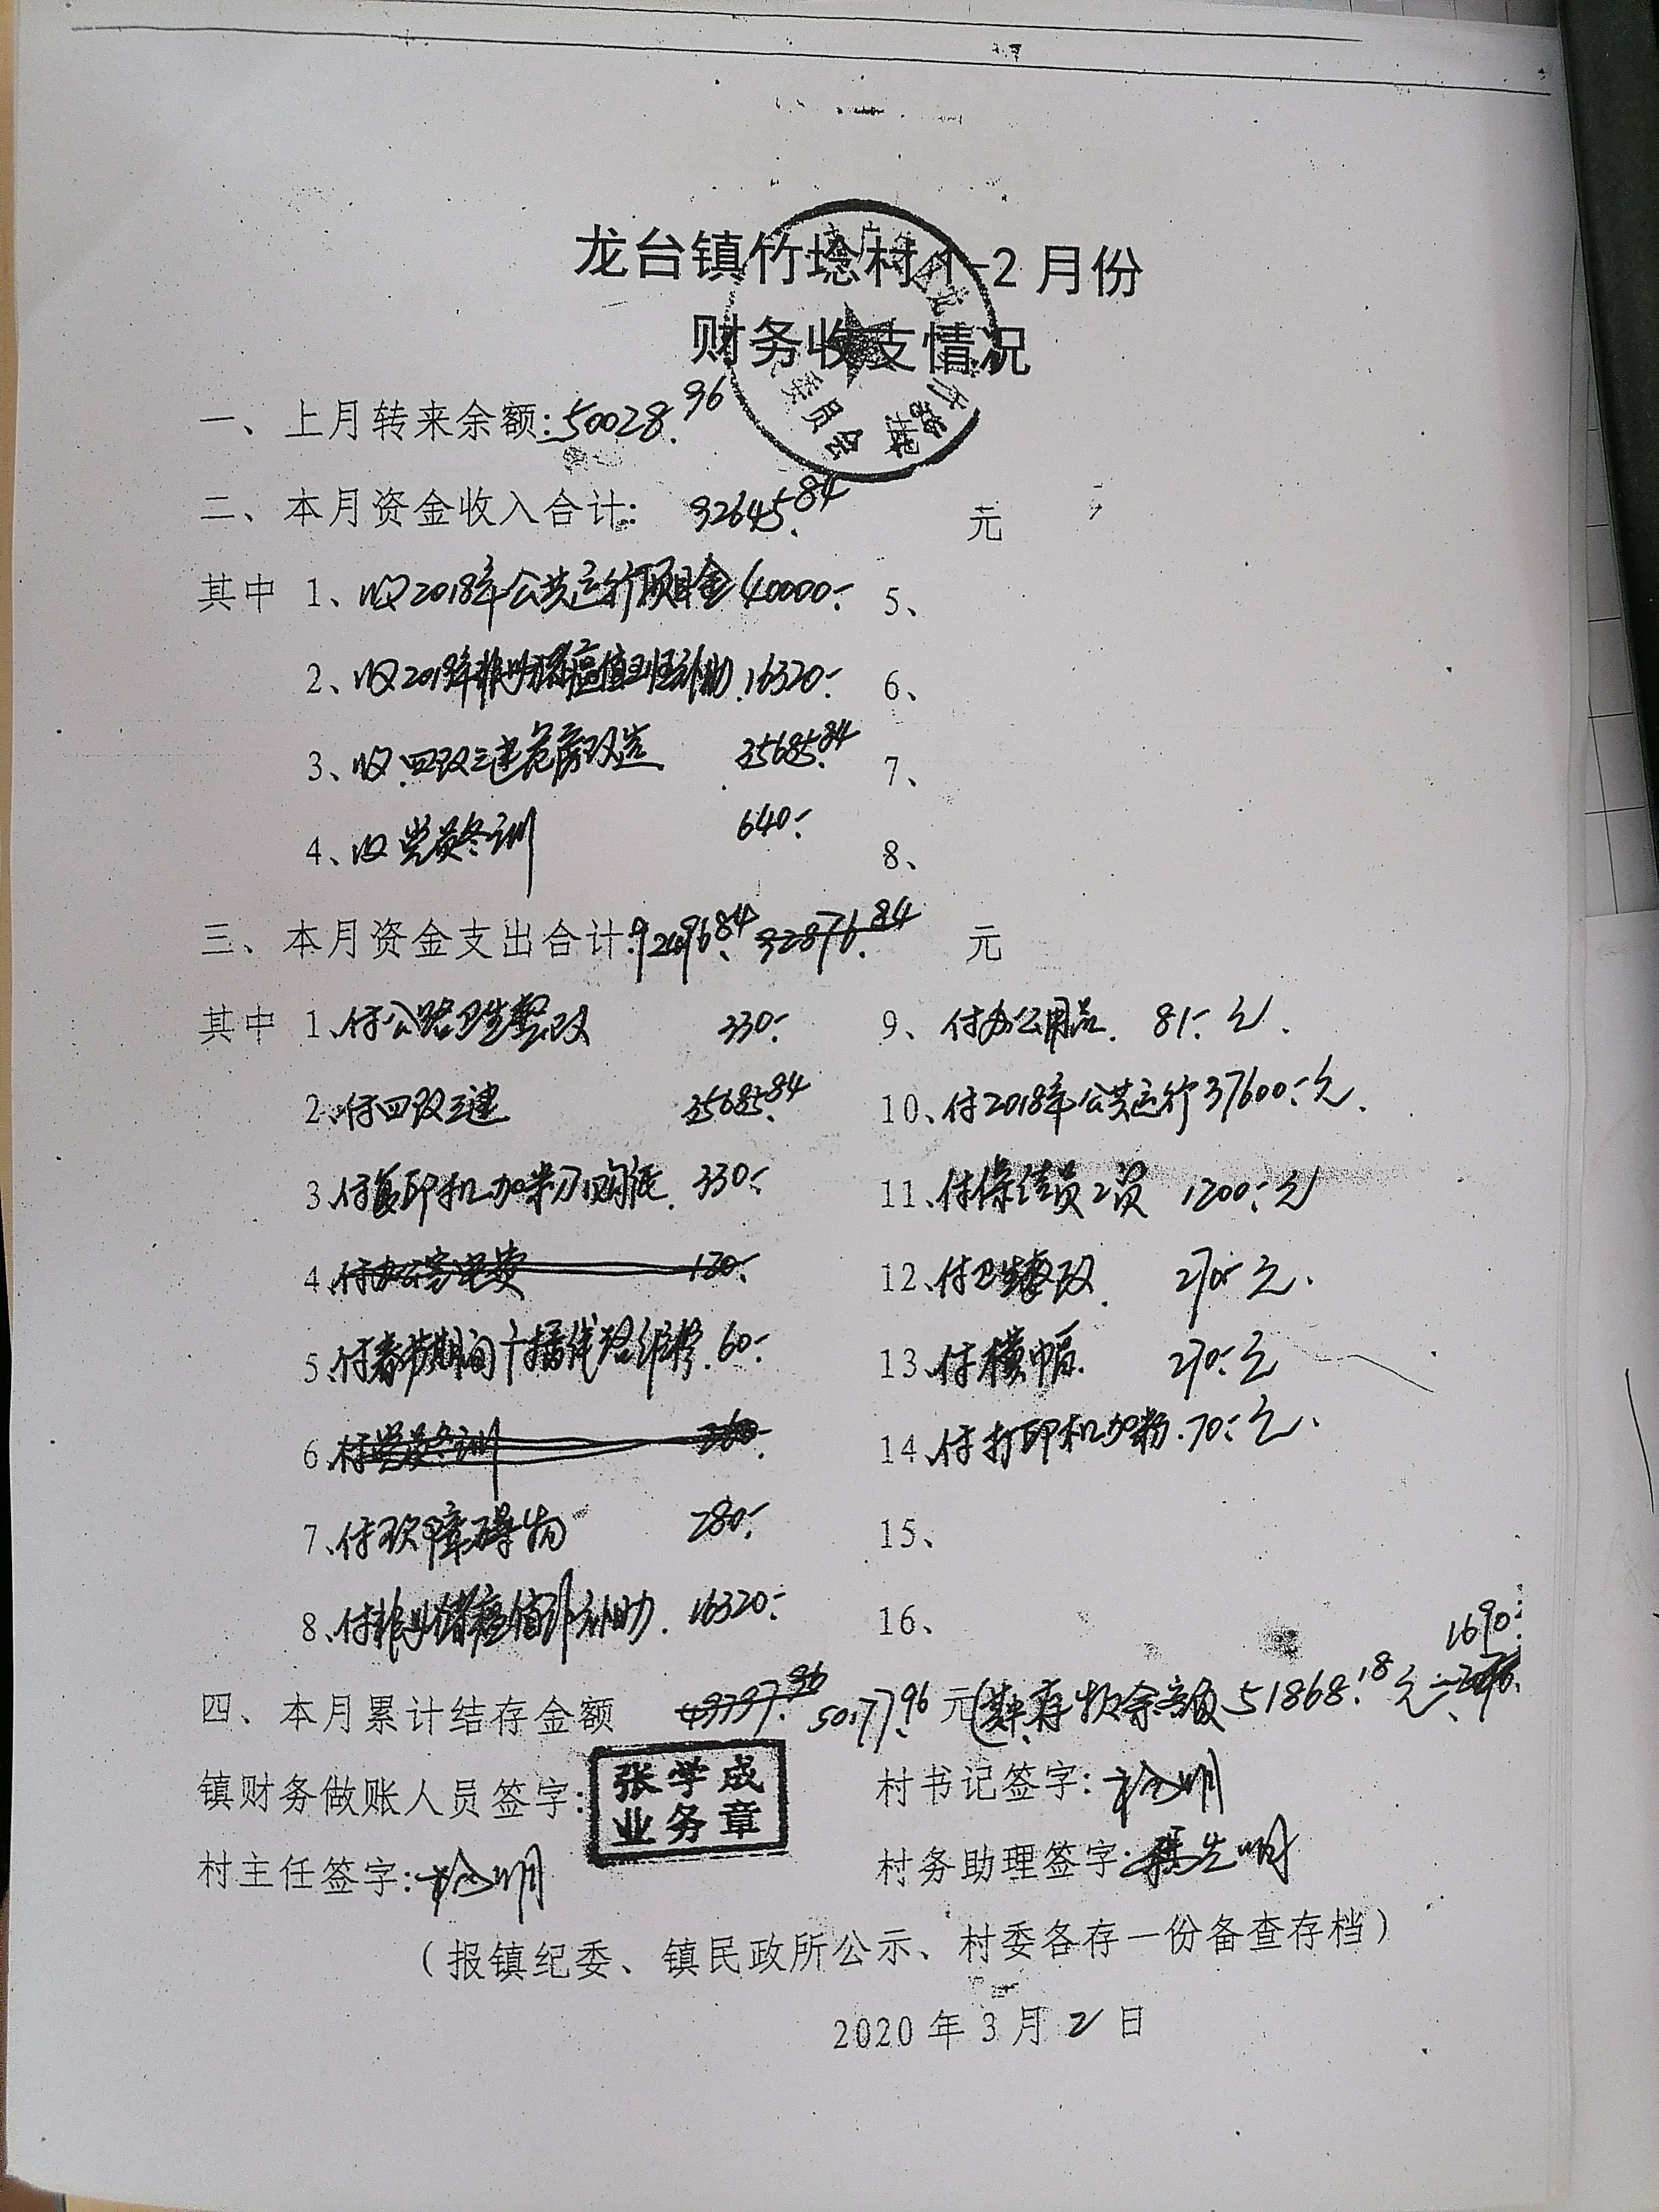 龙台镇竹埝村 1-2 月份
财务收支情况
委员会
一、上月转来余额: 50028.96
二、本月资金收入合计: 92645.84 元
其中 1、收2018年公共运行项目金 40000.- 5、
2、收2019年非洲猪瘟值班补助 16320.- 6、
3、收四改三建危房改造 35685.84 7、
4、收党员冬训 640.- 8、
三、本月资金支出合计: 92496.84 92876.84 元
其中 1、付公路卫生整改 330.- 9、付办公用品 81.-元.
2、付四改三建 35685.84 10、付2018年公共运行 37600.-元.
3、付复印机加粉、购纸 330.- 11、付保洁员工资 1200.-元
4、付办公室电费 120.- 12、付卫生整改 270.-元.
5、付春节期间广播线路维修 60.- 13、付横幅 270.-元
6、付党员冬训 260.- 14、付打印机加粉 70.-元.
7、付砍障碍物 280.- 15、
8、付非洲猪瘟值班补助 16320.- 16、
1690.-
四、本月累计结存金额 49797.96 50177.96 元(其中存款余额 51868.18元
镇财务做账人员签字: 张学成 业务章 村书记签字:
村主任签字: 村务助理签字:
（报镇纪委、镇民政所公示、村委各存一份备查存档）
2020 年 3 月 2 日